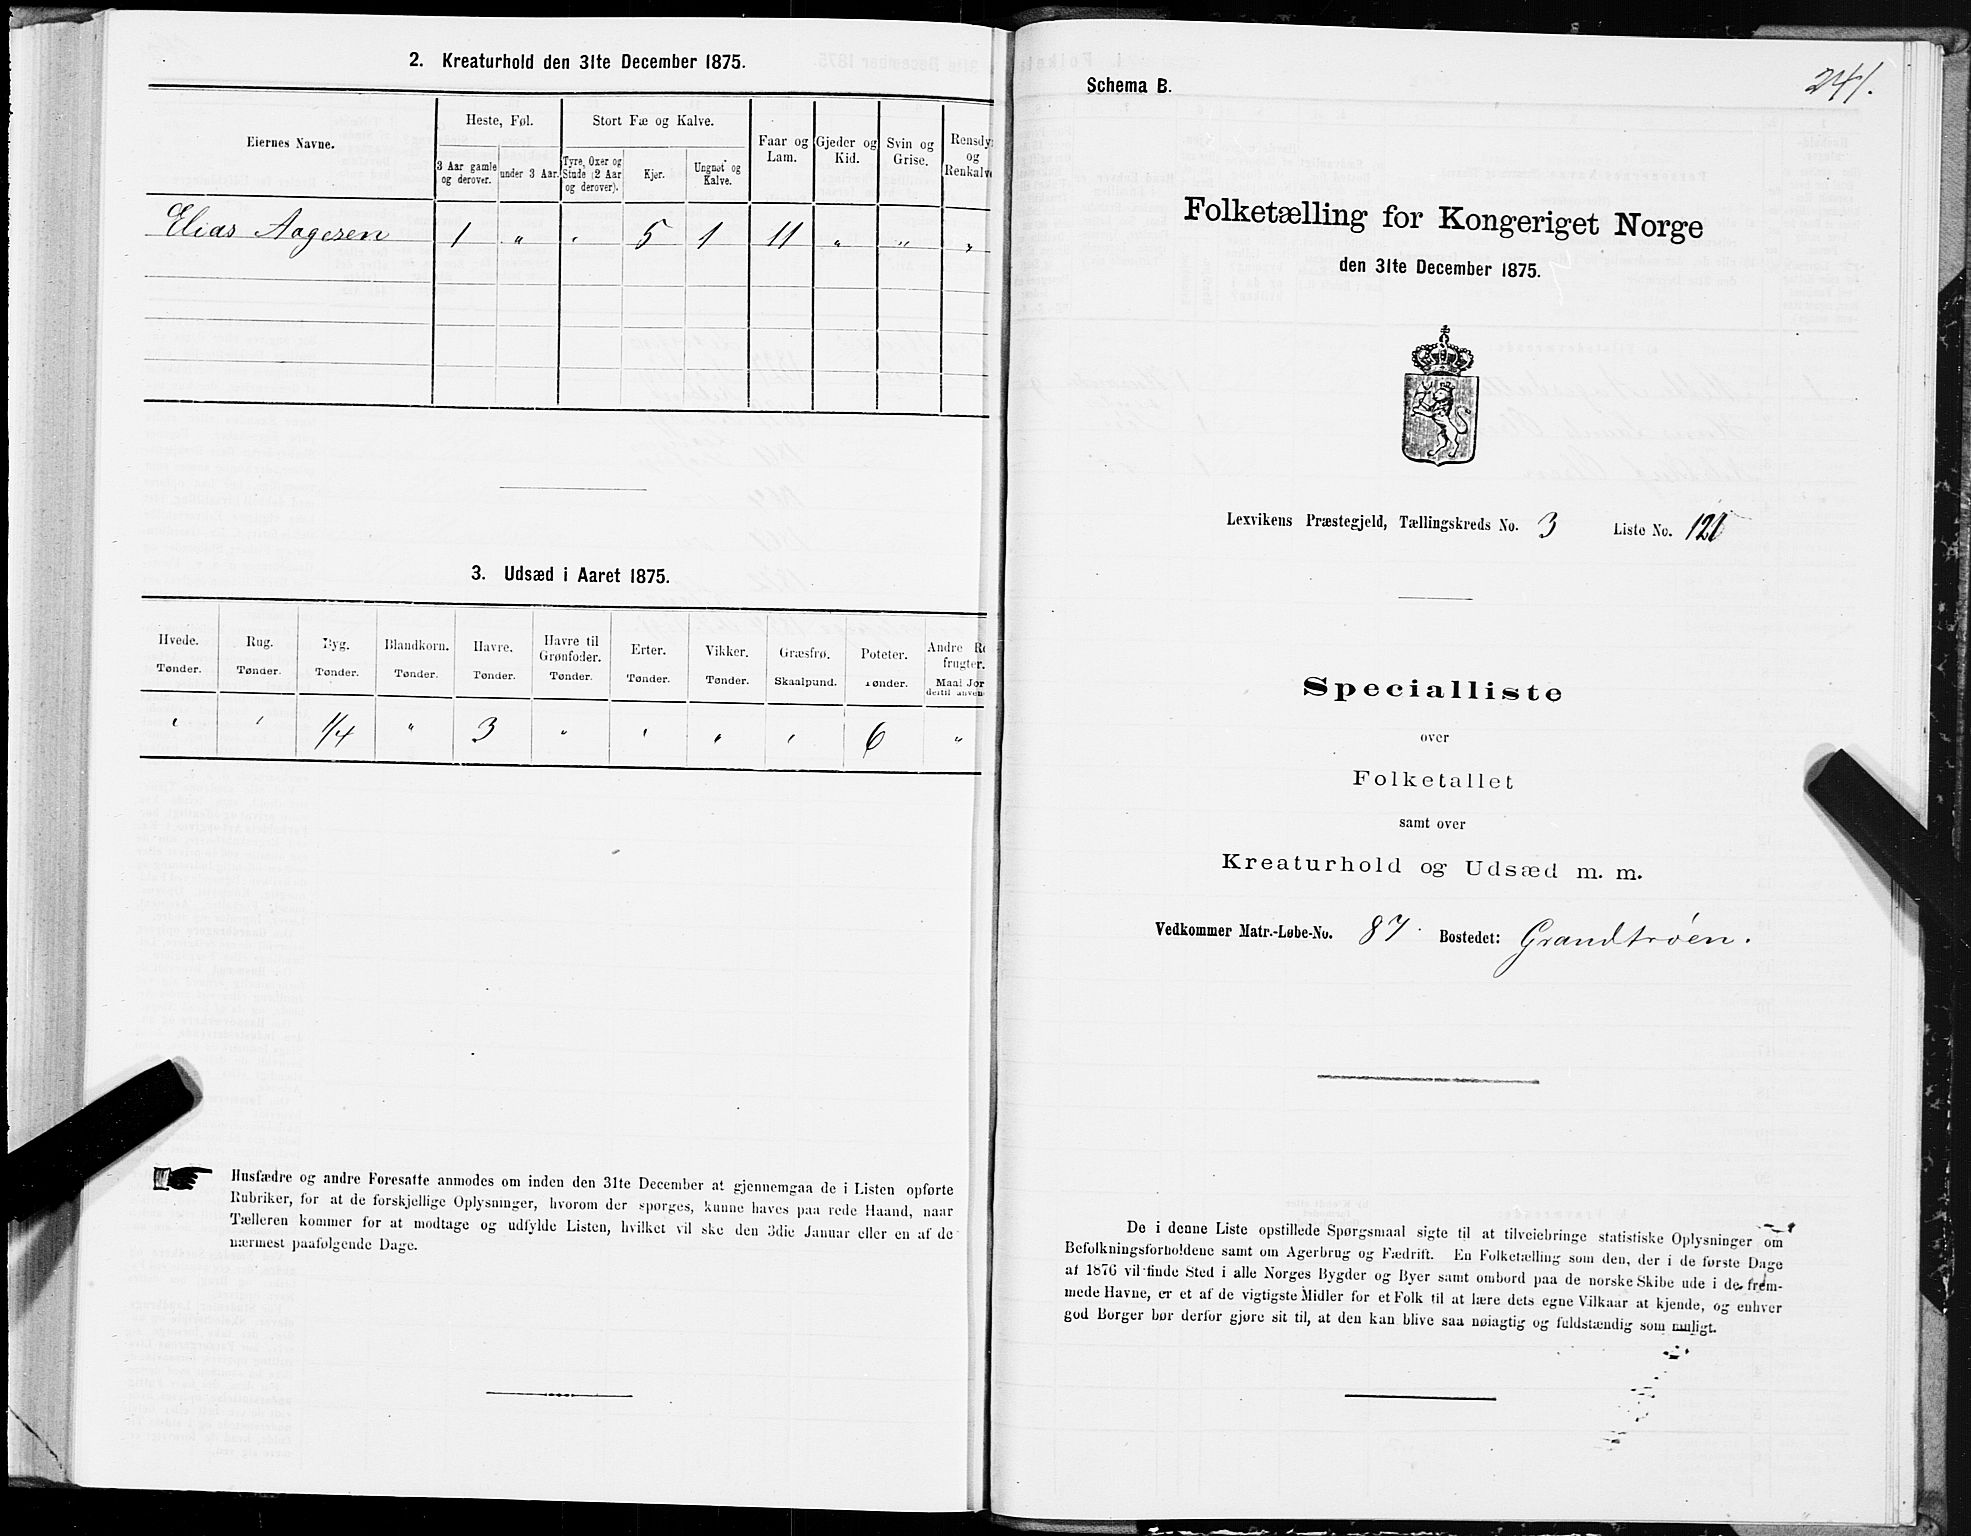 2. Kreaturhold den 31te December 1875.
Eiernes Navne. Heste, Føl. Stort Fæ og Kalve. Faar og Lam. Gjeder og Kid. Svin og Grise. Rensdy og Renkalve
3 Aar gamle og derover. under 3 Aar. Tyre, Oxer og Stude (2 Aar og derover). Kjer. Ungnøt og Kalve.
Elias Aagesen 1 " " 5 1 11 " " "
3. Udsæd i Aaret 1875.
Hvede. Rug. Byg. Blandkorn. Havre. Havre til Grønfoder. Erter. Vikker. Græsfrø. Poteter. Andre Ro frugter.
Tønder. Tønder. Tønder. Tønder. Tønder. Tønder. Tønder. Tønder. Skaalpund. Tønder. Maal Jor dertil anvend
" " 1/4 " 3 " " " " 6 "
Husfædre og andre Foresatte anmodes om inden den 31te December at gjennemgaa de i Listen opførte
Rubriker, for at de forskjellige Oplysninger, hvorom der spørges, kunne haves paa rede Haand, naar
Tælleren kommer for at modtage og udfylde Listen, hvilket vil ske den 3die Januar eller en af de
nærmest paafølgende Dage.
Schema B.
241.
Folketælling for Kongeriget Norge
den 31te December 1875.
Lexvikens Præstegjeld, Tællingskreds No. 3 Liste No. 121
Specialliste
over
Folketallet
samt over
Kreaturhold og Udsæd m. m.
Vedkommer Matr.-Løbe-No. 87. Bostedet: Grandtrøen.
De i denne Liste opstillede Spørgsmaal sigte til at tilveiebringe statistiske Oplysninger om
Befolkningsforholdene samt om Agerbrug og Fædrift. En Folketælling som den, der i de første Dage
af 1876 vil finde Sted i alle Norges Bygder og Byer samt ombord paa de norske Skibe ude i de frem-
mede Havne, er et af de vigtigste Midler for et Folk til at lære dets egne Vilkaar at kjende, og enhver
god Borger bør derfor gjøre sit til, at den kan blive saa nøiagtig og fuldstændig som muligt.